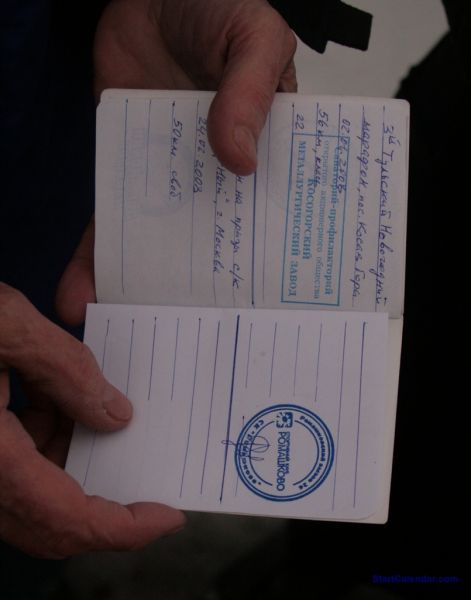 3й Тульский Новогодний
марафон, пос. Косая Гора
02.01.2003
56 км, класс
22
Санаторий-профилакторий
открытого акционерного общества
КОСОГОРСКИЙ
МЕТАЛЛУРГИЧЕСКИЙ ЗАВОД
н на призы с/к
г. Москва
24.02 2003
50 км. своб
РОМАШКОВО
StartCalendar.com